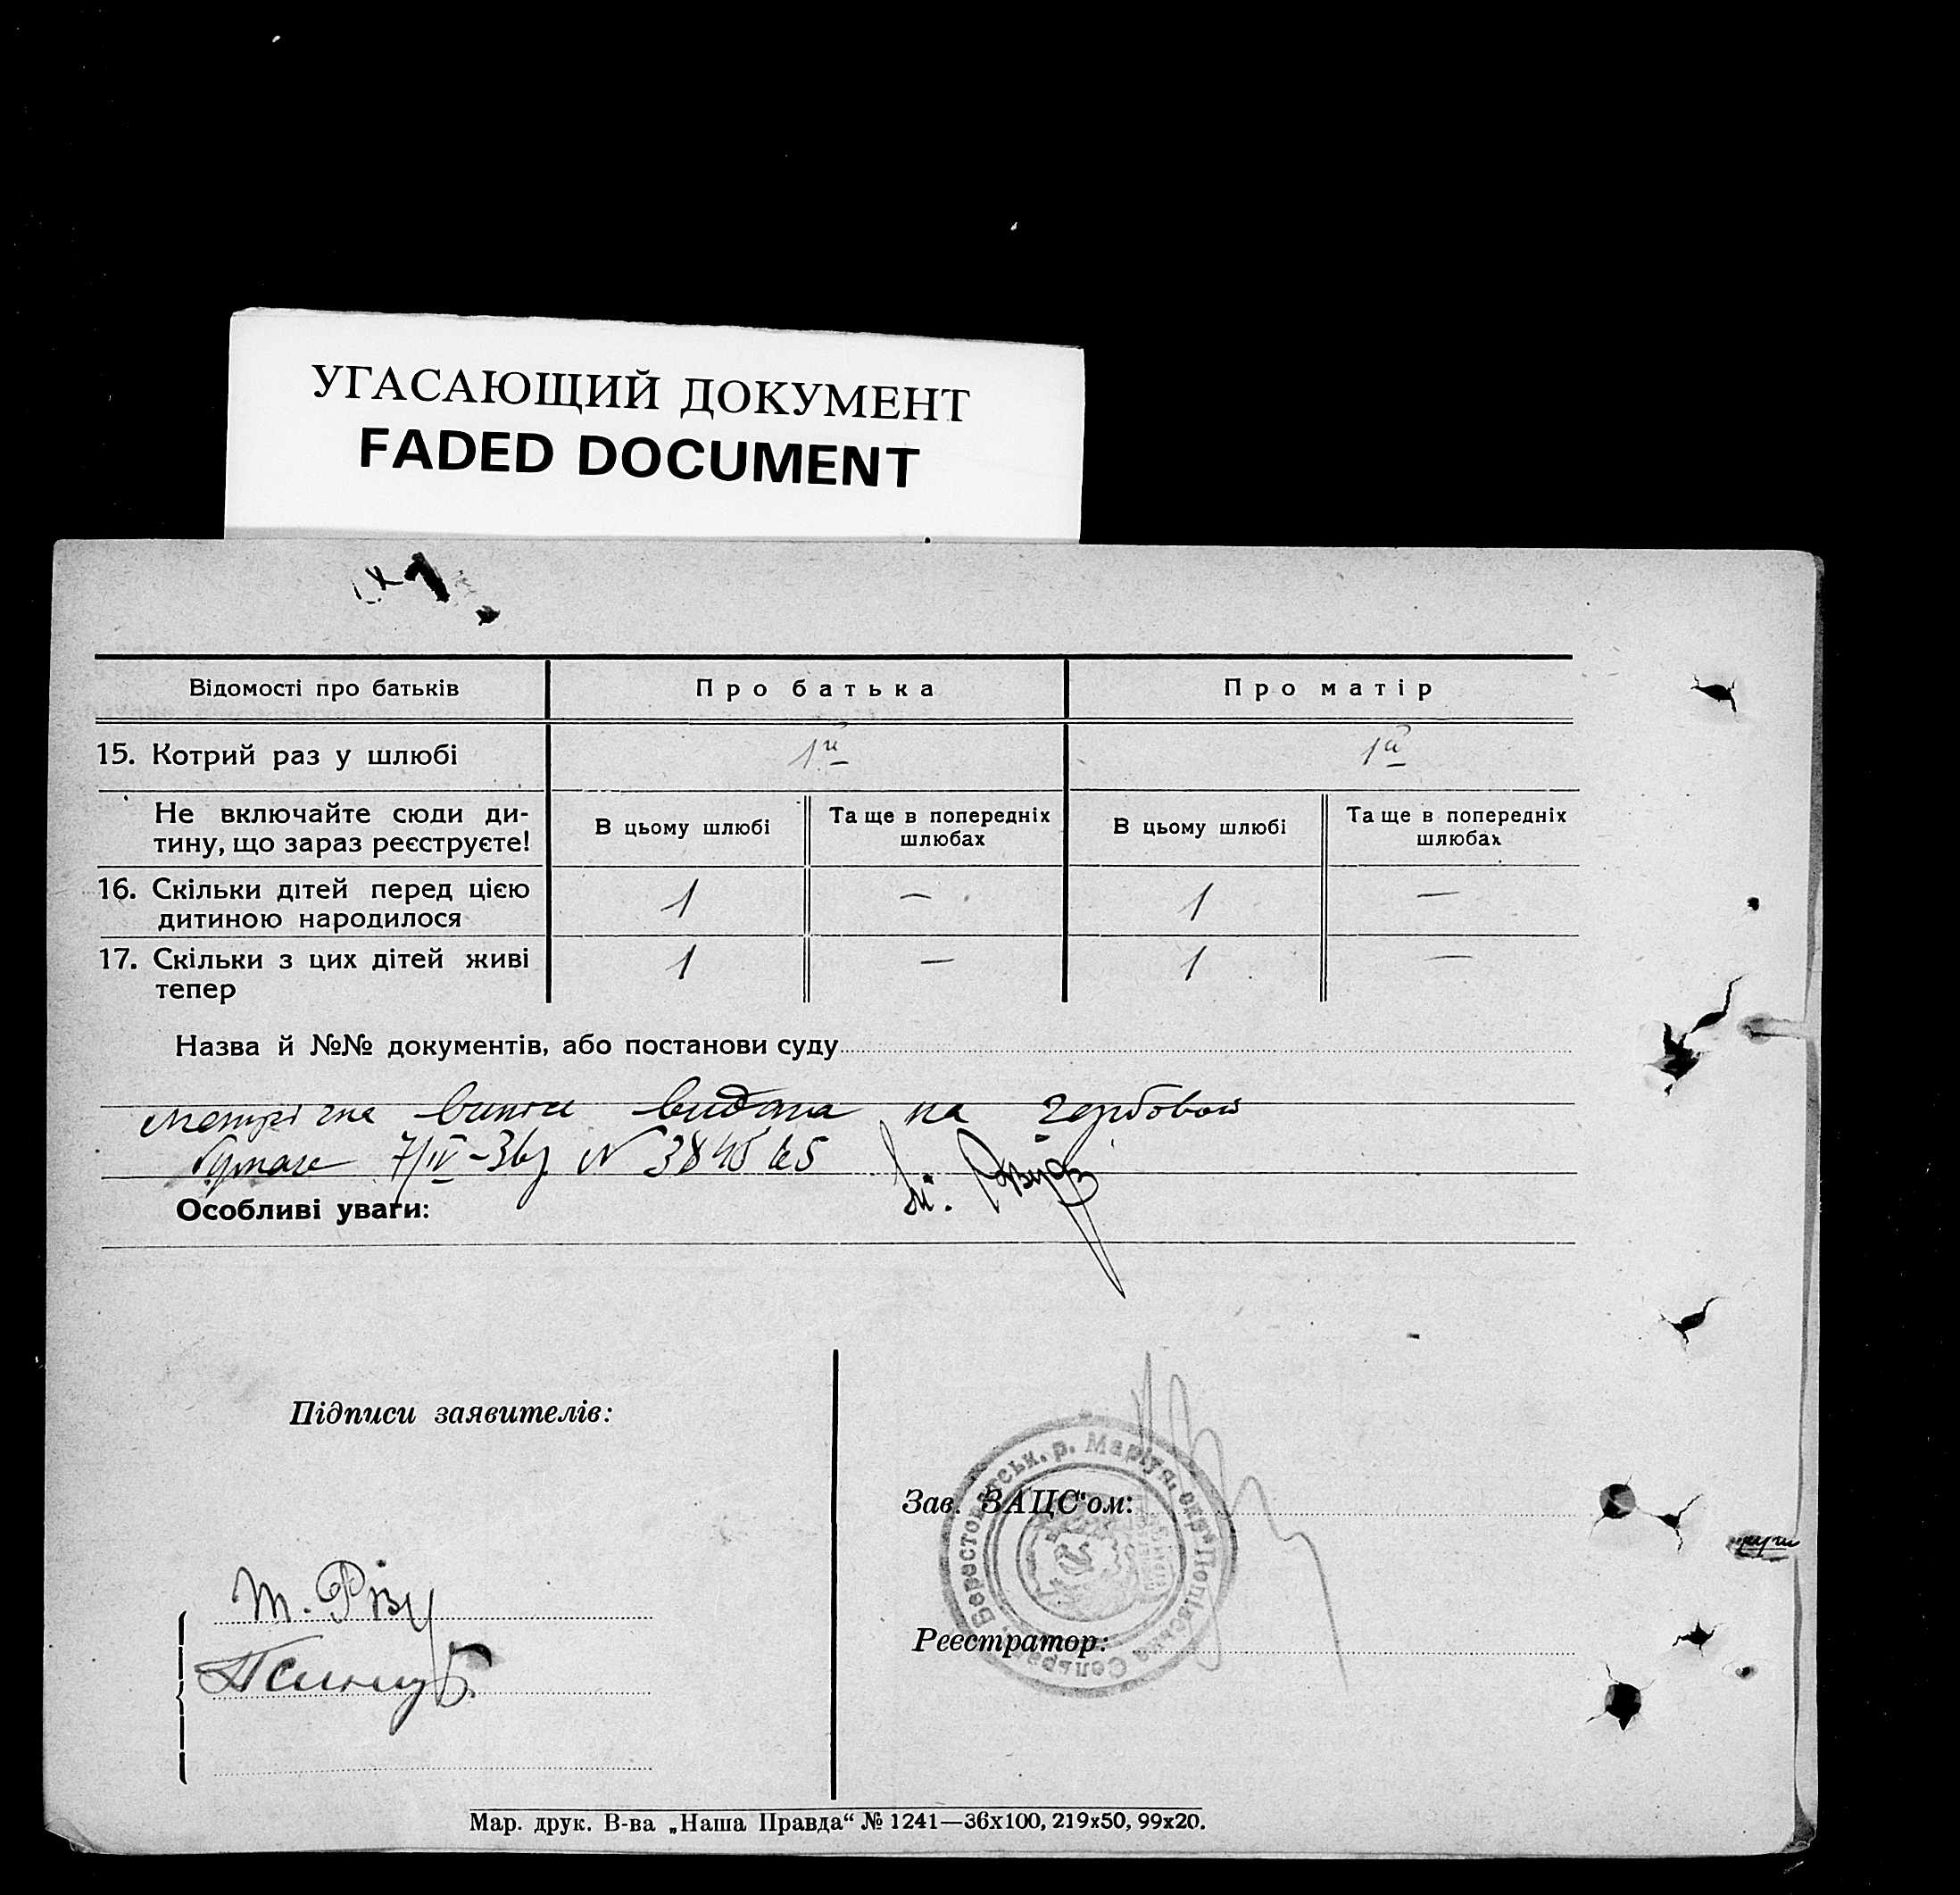 УГАСАЮЩИЙ ДОКУМЕНТ
FADED DOCUMENT
Відомості про батьків
Про батька
Про матір
15. Котрий раз у шлюбі
1й
1й
Не включайте сюди ди-
тину, що зараз реєструєте!
В цьому шлюбі
Та ще в попередніх
шлюбах
В цьому шлюбі
Та ще в попередніх
шлюбах
16. Скільки дітей перед цією
дитиною народилося
1
—
1
—
17. Скільки з цих дітей живі
тепер
1
—
1
—
Назва й №№ документів, або постанови суду
метрична видана на гербовой
7/IV-36
Особливі уваги:
Підписи заявителів:
Зав. ЗАЦС'ом:
Реєстратор:
Мар. друк. В-ва „Наша Правда“ № 1241—36х100, 219х50, 99х20.